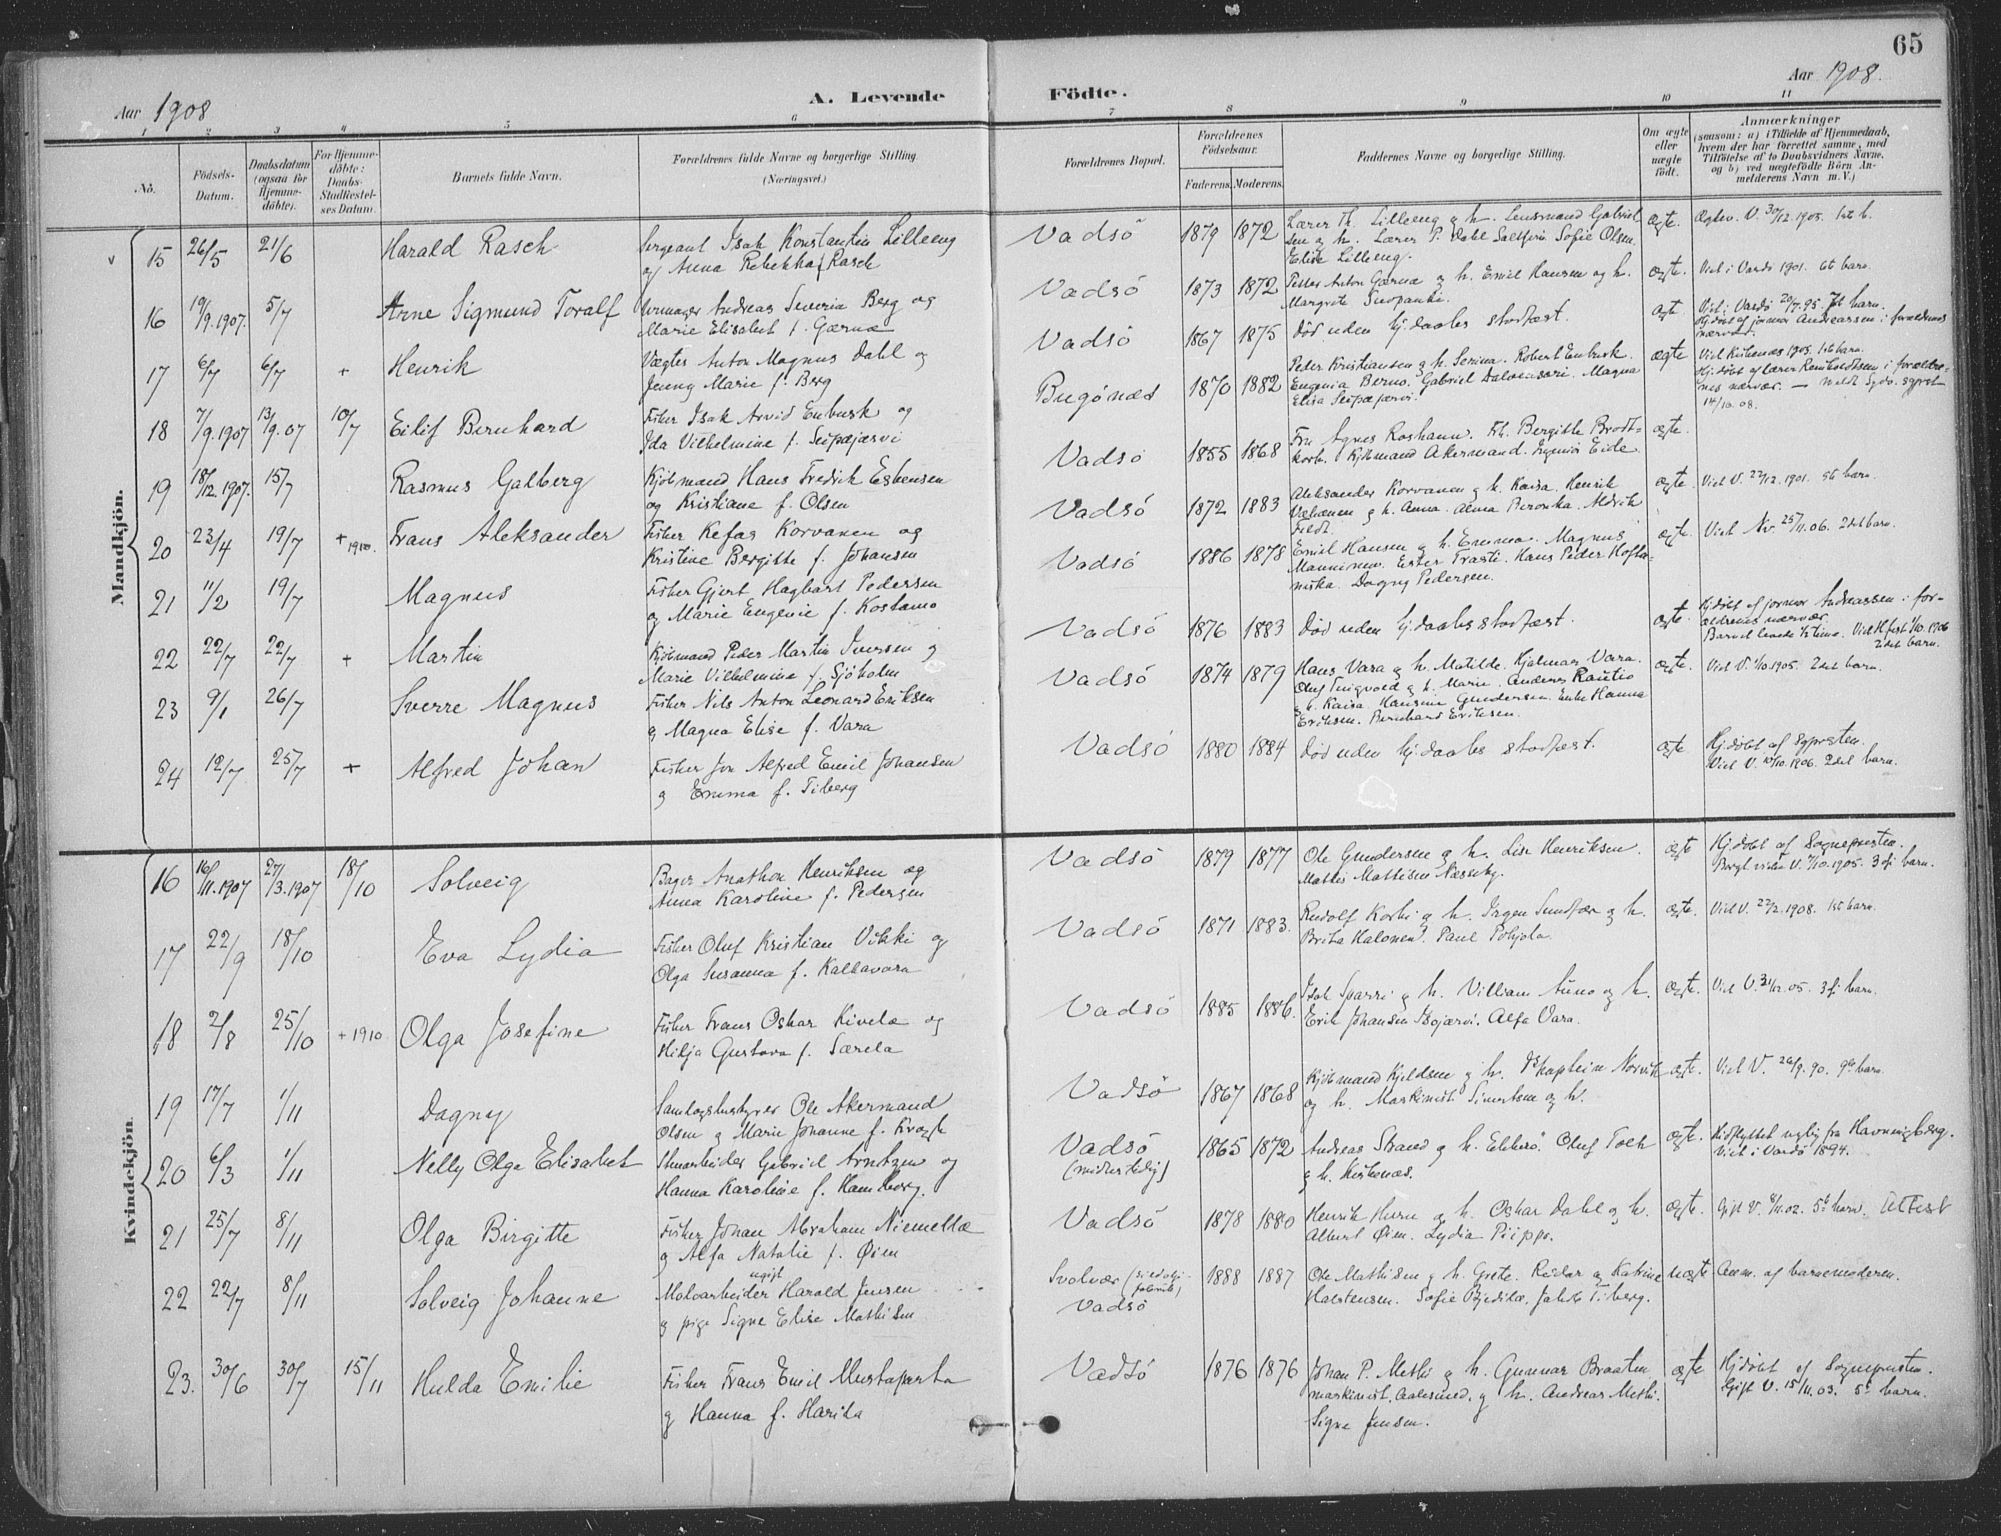 65
Aar 1908
A. Levende
Födte.
Aar 1908.
1 2 3 4 5 6 7 8 9 10 11
No.
Födsels-
Datum.
Daabsdatum
(ogsaa for
Hjemme-
döbte).
For Hjemme-
döbte:
Daabs-
Stadfæstel-
ses Datum.
Barnets fulde Navn.
Forældrenes fulde Navne og borgerlige Stilling
(Næringsvei.)
Forældrenes Bopæl.
Forældrenes
Födselsaar.
Faderens. Moderens.
Faddernes Navne og borgerlige Stilling.
Om ægte
eller
uægte
født.
Anmærkninger
(saasom: a) i Tilfælde af Hjemmedaab,
hvem der har forrettet samme, med
Tilføielse af to Daabsvidners Navne,
og b) ved uægtefödte Börn An-
melderens Navn m. V.)
Mandkjön.
15 26/5 21/6 Harald Rasch
Sergeant Isak Konstantin Lilleeng
og Anna Rebekka Rasch
Vadsö 1879 1872
Lærer Th. Lilleeng og h. Lensmand Gabriel
sen og h. Lærer P. Dahl Sofie Olsen
Elise Lilleeng.
ægte.
16 19/9.1907. 5/7 Arne Sigmund Toralf
Urmager Andreas Severin Berg og
Marie Elisabet f. Gærnæ
Vadsö 1873 1872
Petter Anton Gærnæ og h. Emil Hansen og h.
Margrete
ægte. Viel i Vardö 1901. 6te barn.
17 6/7 6/7 + Henrik
Vægter Anton Magnus Dahl og
Jenny Marie f. Berg
Vadsö 1867 1875
Död uden hj.daabs stadfæst.
ægte Viet i Vardö 20/7.95. 7de barn.
Hjdöbt af jormor Andreassen i forældrenes
nærvær.
18 7/9.1907 13/9.07 10/7 Eilif Bernhard
Fisker Isak Arvid Enbusk og
Ida Vilhelmine f. Seipæjærvi
Bugönæs 1870 1882
Peder Kristiansen og h. Serina. Robert Enbusk.
Eugenia Berno. Gabriel Magna
Elisa Seipæjærvi.
ægte Viel Kirkenæs 1905. 1ste barn.
Hjdöbt af lærer Reinholdtsen i forældre-
nes nærvær.
14/10.08.
19 18/12.1907. 15/7 Rasmus Galberg
Kjöbmand Hans Fredrik Esbensen
og Kristiane f. Olsen
Vadsö 1855 1868
Fru Agnes Roshaun. Frk. Bergitte Brodt-
korb. Kjöbmand Akermand. Ingeniör Eide.
ægte.
20 23/4 19/7 + 1910. Frans Aleksander
Fisker Kefas Korvanen og
Kristine Bergitte f. Johansen
Vadsö 1872 1883
Aleksander Korvanen og h. Kaisa. Henrik
og h. Anna. Alma Pironka. Aldrik
Feldt.
ægte. Viel V. 22/12.1901. 5te barn.
21 11/2 19/7 Magnus
Fisker Gjert Hagbart Pedersen
og Marie Eugenie f. Kostamo
Vadsö 1886 1878
Emil Hansen og h. Emma. Magnus
Manninen. Ester Trasti. Hans Peder
Dagny Pedersen.
ægte. Viet Nv. 25/11.06. 2det barn.
22 22/7 22/7 + Martin
Kjöbmand Peder Martin Iversen og
Marie Vilhelmina f. Sjöholm
Vadsö 1876 1883
Död uden hj.daabs stadfæst.
ægte. Hjdöbt af jormor Andreassen i for-
ældrenes nærvær.
Barnet levede 1/2 time.
2det barn.
23 9/1 26/7 Sverre Magnus
Fisker Nils Anton Leonard Eriksen
og Magna Elise f. Vara
Vadsö 1874 1879
Hans Vara og h. Matilde. Hjalmar Vara.
Oluf Tuigvold og h. Marie. Anders Rautio
og h. Kaisa. Hansine Gundersen. Enke Hanna
Eriksen. Bernhard Eriksen.
ægte. Viel V. 1/10.1905. 2det barn.
24 12/7 25/7 + Alfred Johan
Fisker Jon Alfred Emil Johansen
og Emma f. Tiberg
Vadsö 1880 1884
Död uden hj.daabs stadfæst.
ægte Hjdöbt af Sgpresten.
Viet V. 10/10.1906. 2det barn.
Kvindekjön.
16 16/11.1907 27/3.1907 18/10 Solveig
Bager Anathon Henriksen og
Anna Karoline f. Pedersen
Vadsö 1879 1877
Ole Gundersen og h. Lise Henriksen.
Mattis Mathisen Næsseby.
ægte Hjdöbt af Sognepresten.
Borgl. viede V. 11/10.1905. 3die barn.
17 22/9 18/10 Eva Lydia
Fisker Oluf Kristian Vikki og
Olga Susanna f. Kallavara
Vadsö 1871 1883.
Rudolf Korbi og h. Ingen Sundfær og h.
Brita Halonen. Paul Pohjola.
ægte. Viel V. 22/2.1908. 1ste barn.
18 2/8 25/10 + 1910 Olga Josefine
Fisker Frans Oskar Kivelæ og
Hilja Gustava f. Særela
Vadsö 1885 1886.
Isak Sparri og h. Villiam Auno og h.
Erik Johansen Isojærvi. Alfa Vara.
ægte. Viel V. 31/12.05. 3die barn.
19 17/7 1/11 Dagny
Samlagsbestyrer Ole Akermand
Olsen og Marie Johanne f. Krogh
Vadsö 1867 1868
Kjöbmand Kjeldsen og h. Dskaptein Norvik
og h. Maskinist Sivertsen og h.
ægte. Viel V. 26/9.90. 9de barn.
20 6/3 1/11 Nelly Olga Elisabet
Stuearbeider Gabriel Arntzen og
Hanna Karoline f. Hamborg.
Vadsö
(midlertidig)
1865 1872
Andreas Strand og h. Ekkerö. Oluf Toch
og h. Kirkenæs.
ægte. Hidflyttet nylig fra Havningberg.
Viet i Vardö 1894.
21 25/7 8/11 Olga Birgitte
Fisker Johan Abraham Niemelæ
og Alfa Natalie f. Öien
Vadsö 1878 1880
Henrik Hurn og h. Oskar Dahl og h.
Albert Öien. Lydia Piippo.
ægte. Gift V. 8/11.02. 5te barn. Attest
22 22/7 8/11 Solveig Johanne
ugift
Moloarbeider Harald Jensen
og pige Signe Elise Mathisen
Svolvær (sildolje-
fabrik)
Vadsö
1888 1887
Ole Mathisen og h. Grete. Reidar og Katrine
Halstensen. Sofie Bjedilæ. Jakob Tiberg.
uægte Anm. af barnemoderen.
23. 30/6 30/7 15/11 Hulda Emilie
Fisker Frans Emil Mustaparta
og Hanna f. Harila
Vadsö 1876 1876
Johan P. Methi og h. Gunnar Braaten
maskinist, Aalesund, og h. Andreas Methi.
Signe Jensen.
ægte Hjdöbt af Sognepresten.
Gift V. 15/11.03. 5te barn.